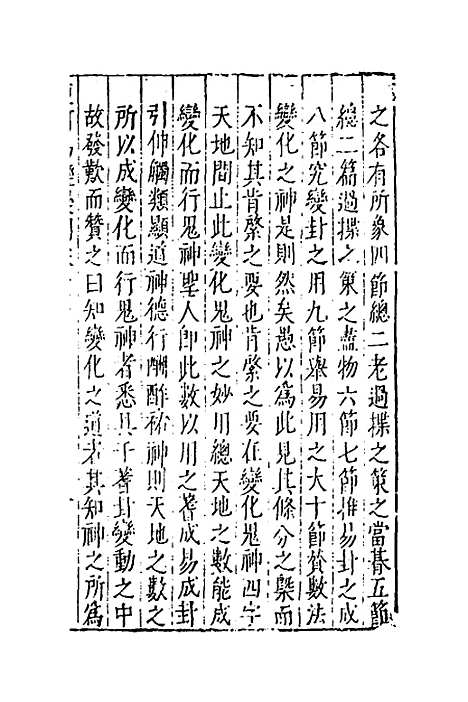 之各有所象四節總二老過揲之策之當朞五節
總二篇過揲之策之盡物六節七節推易卦之成
八節究變卦之用九節舉易用之大十節贊數法
變化之神是則然矣愚以爲此見其條分之槩而
不知其肯綮之要也肯綮之要在變化鬼神四字
天地間止此變化鬼神之妙用總天地之數能成
變化而行鬼神聖人即此數以用之蓍成易成卦
引伸觸類顯道神德行酬酢祐神則天地之數之
所以成變化而行鬼神者悉具于蓍卦變動之中
故發歎而贊之曰知變化之道者其知神之所爲